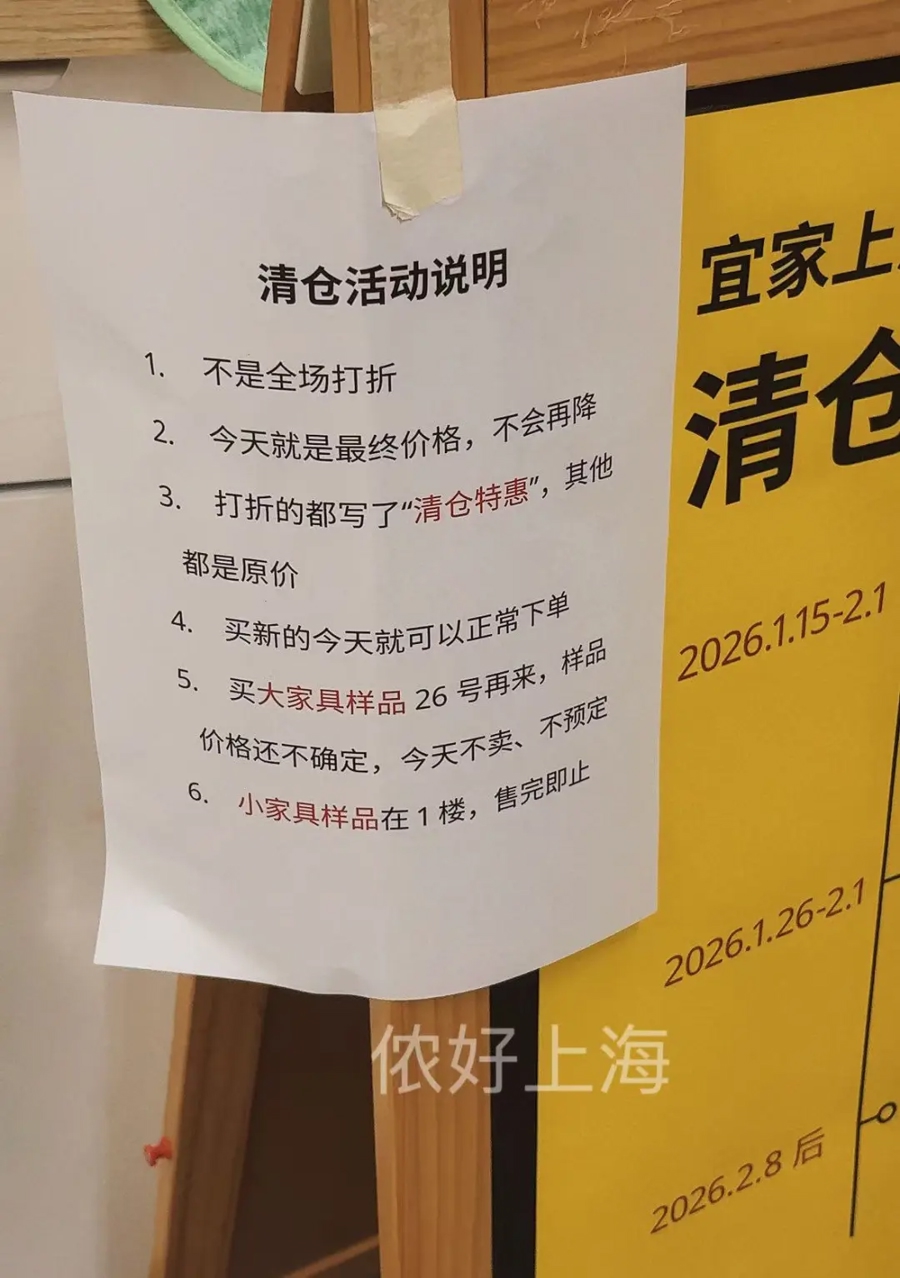 清仓活动说明
1. 不是全场打折
2. 今天就是最终价格，不会再降
3. 打折的都写了“清仓特惠”，其他
都是原价
4. 买新的今天就可以正常下单
5. 买大家具样品 26 号再来，样品
价格还不确定，今天不卖、不预定
6. 小家具样品在 1 楼，售完即止
宜家上
清仓
2026.1.15-2.1
2026.1.26-2.1
2026.2.8 后
侬好上海